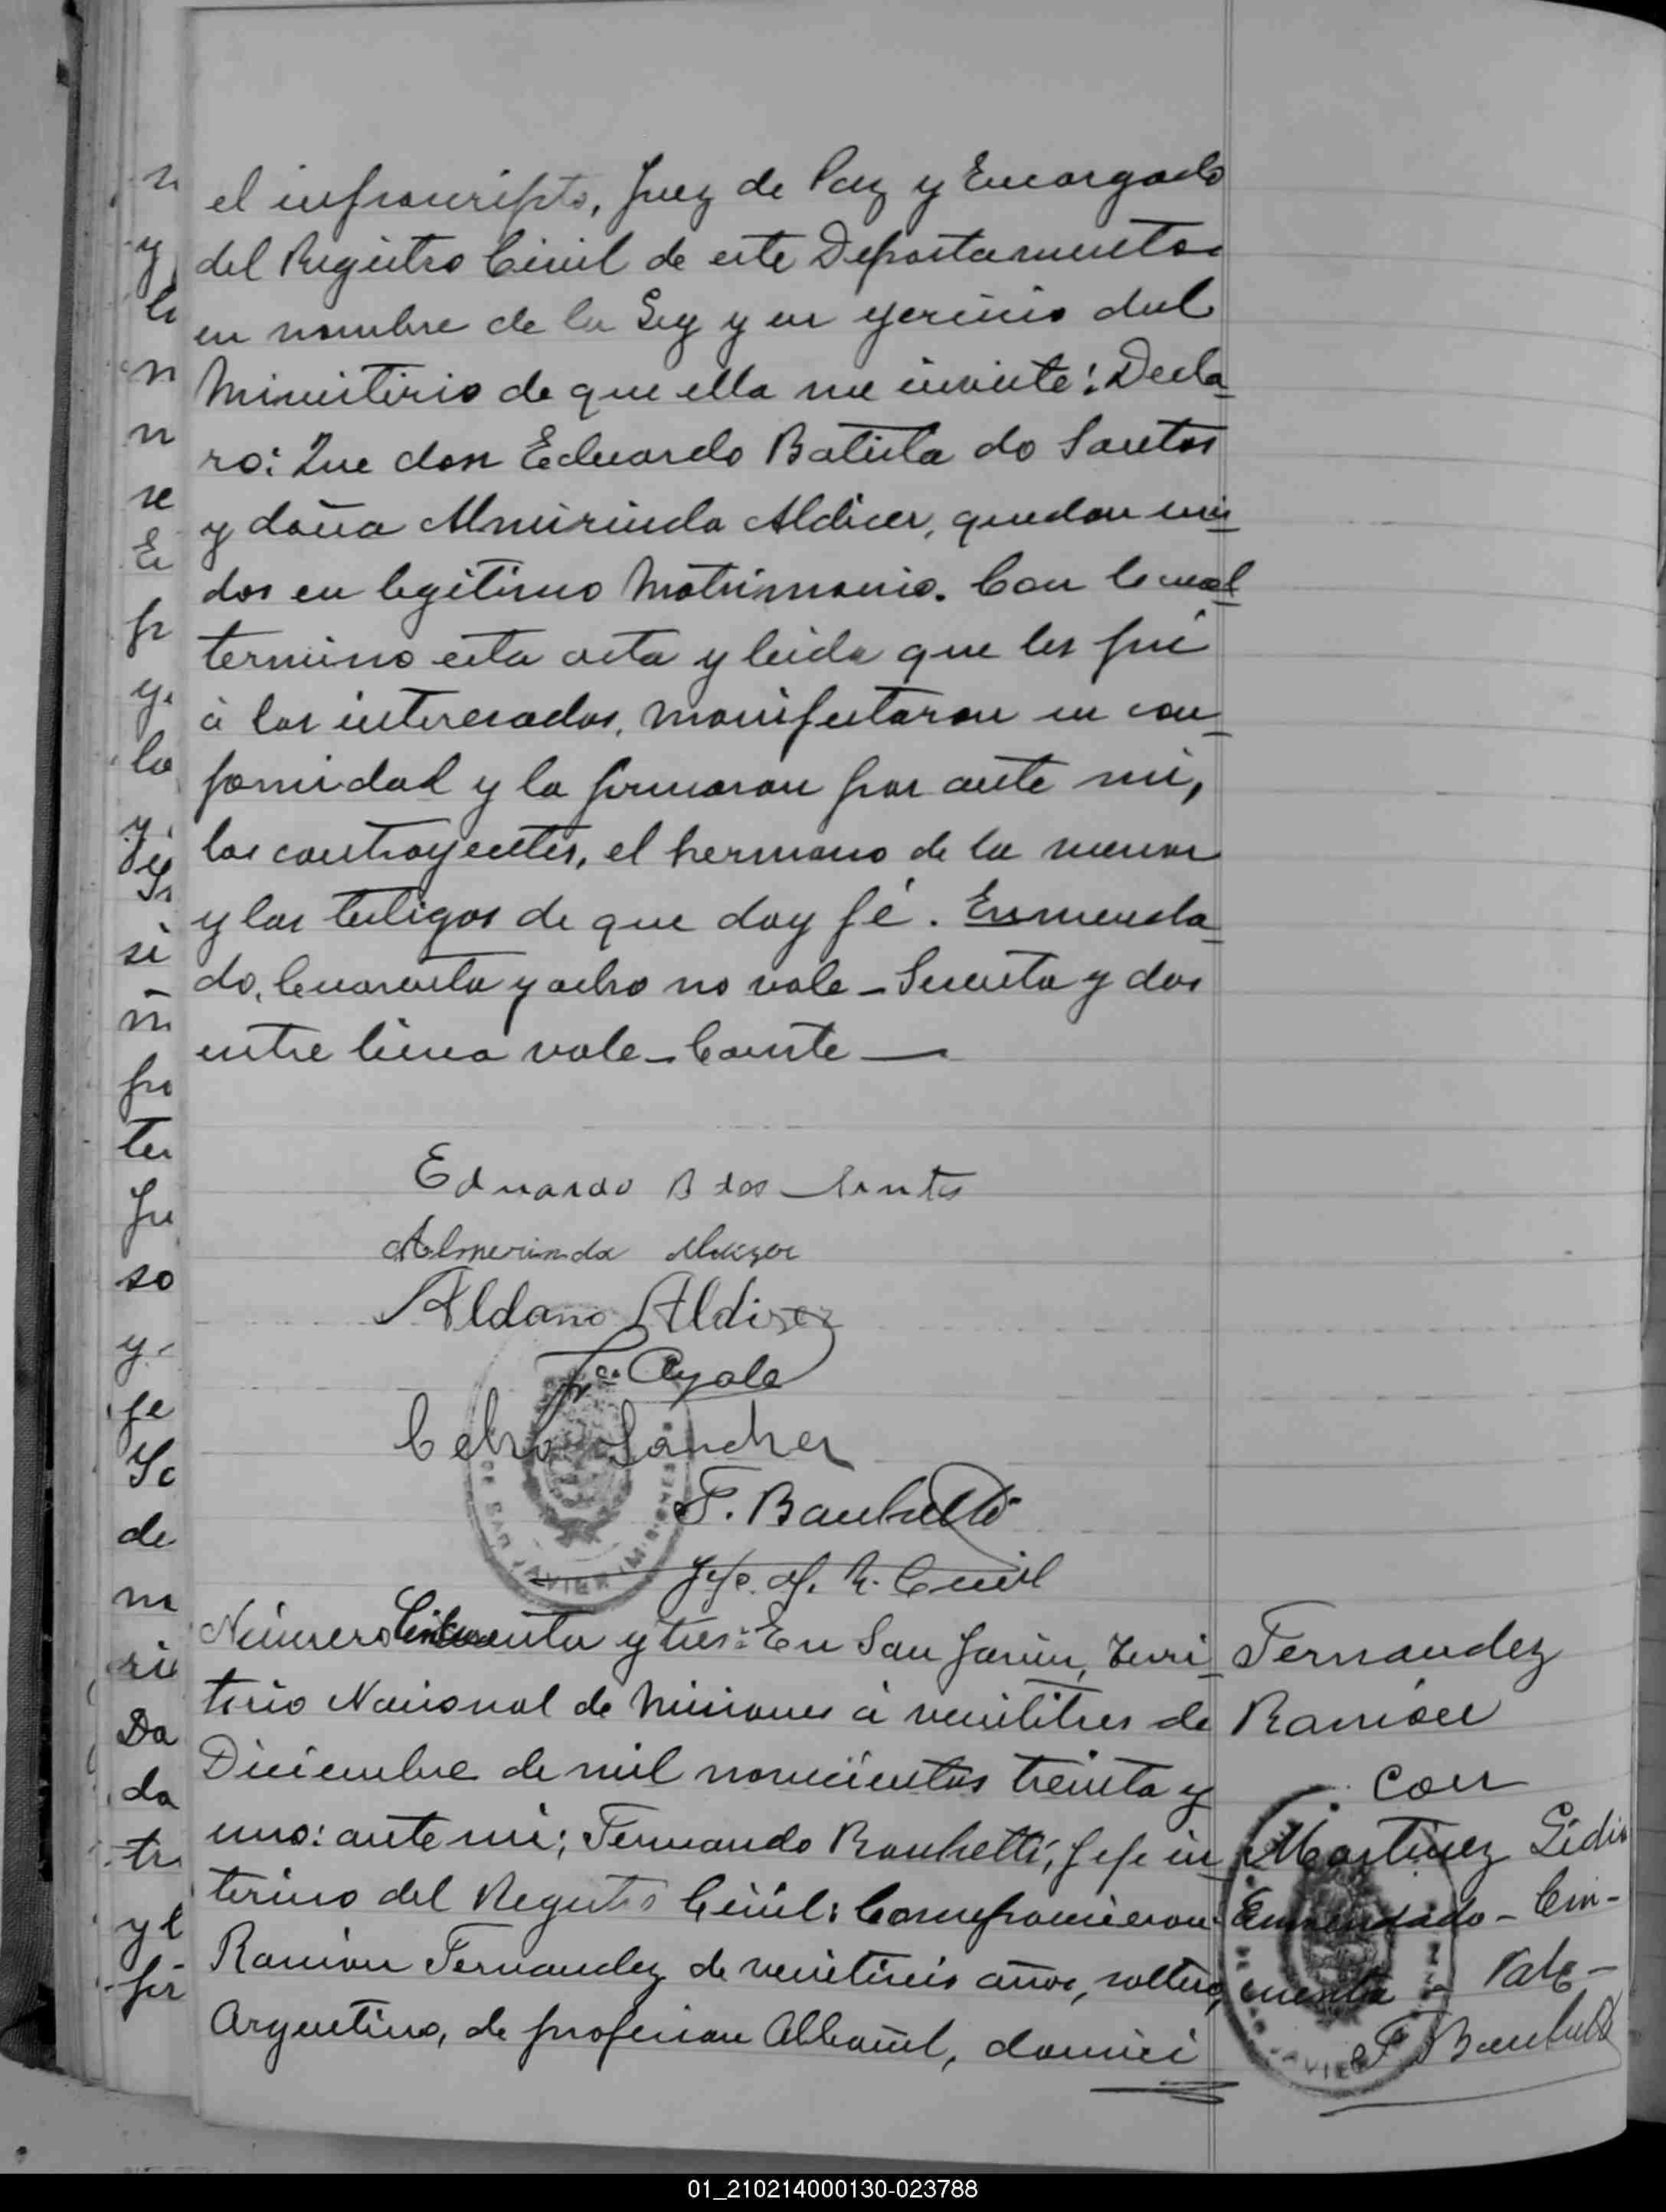 el infrascripto, Juez de Paz y Encargado
del Registro Civil de este Departamento
en nombre de la Ley y en ejercicio del
Ministirio de que ella me inviste: Decla-
ro: Que don Eduardo Batista do Santos
y doña Almirinda Aldicer, quedan uni-
dos en legitimo Matrimonio. Con lo cual
termino esta acta y leida que les fué
á los interesados, manifestaron su con-
formidad y la firmaron por ante mi,
los contrayentes, el hermano de la menor
y los testigos de que doy fé. Enmenda-
do, Cuarenta y ocho no vale - Sesenta y dos
entre linea vale - Conste —
Eduardo B dos Santos
Almerinda
Aldano Aldizer
Fco Ayala
Celso Sanchez
F. Banchetti
Jefe. Of. R. Civil
DE SAN JAVIER (MISIONES)
Número Cincuenta y tres: En San Javier, Terri-
torio Nacional de Misiones á veintitres de
Diciembre de mil novecientos treinta y
uno: ante mi; Fernando Banchetti, Jefe in-
terino del Registro Civil: Comparecieron:
Ramon Fernandez de veintiseis años, soltero,
Argentino, de profesion Albañil, domici
Fernandez
Ramón
con
Martinez Lidia
Enmendado - Cin-
cuenta - Vale -
F Banchetti
01_210214000130-023788